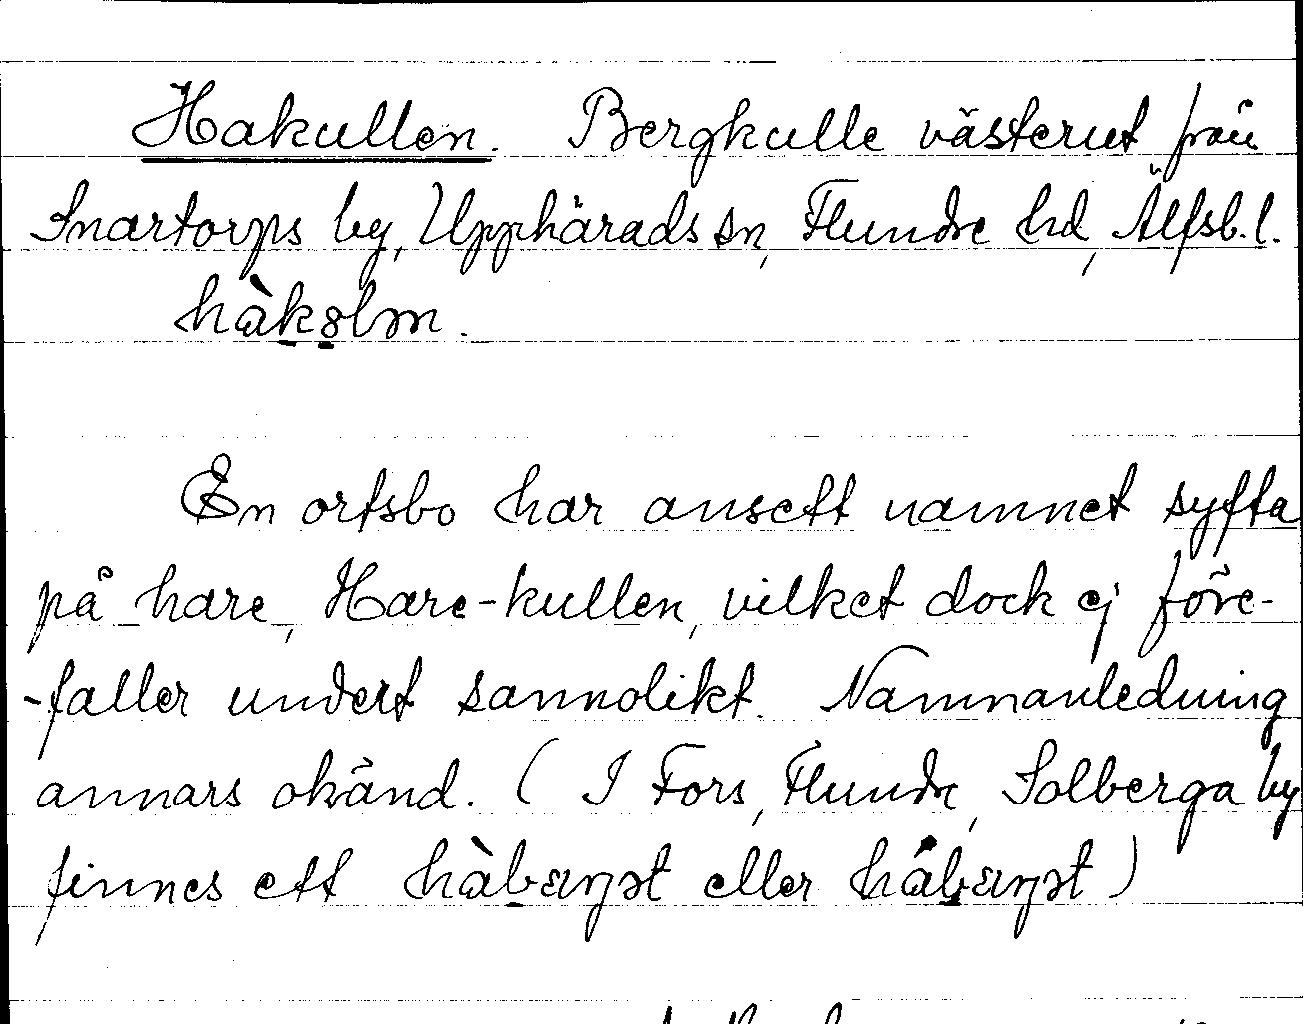 Hakullen. Bergkulle västerut från
Snartorps by, Upphärads sn, Flundre hd, Älfsb. l.
hàkɞlɷn.
En ortsbo har ansett namnet syfta
på hare, Hare-kullen, vilket dock ej före-
-faller undert sannolikt. Namnanledning
annars okänd. (I Fors, Flundre, Solberga by
finnes ett hàbærjət eller hábærjət)